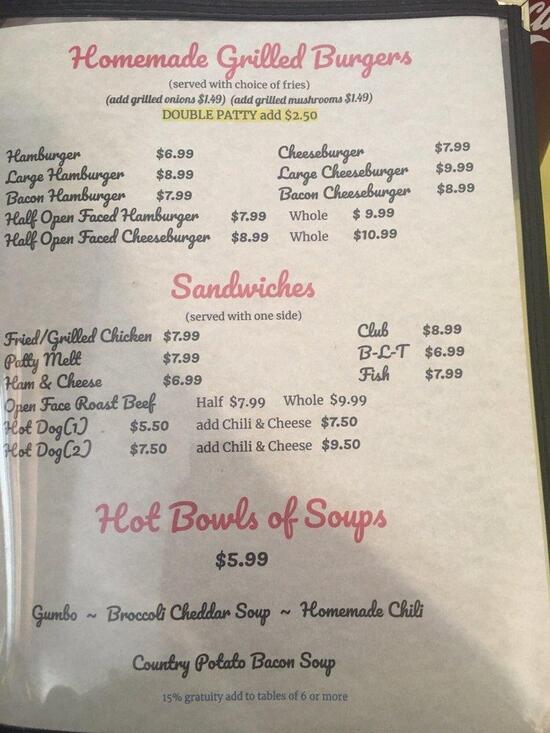 Homemade Grilled Burgers
(served with choice of fries)
(add grilled onions $1.49) (add grilled mushrooms $1.49)
DOUBLE PATTY add $2.50
Hamburger $6.99 Cheeseburger $7.99
Large Hamburger $8.99 Large Cheeseburger $9.99
Bacon Hamburger $7.99 Bacon Cheeseburger $8.99
Half Open Faced Hamburger $7.99 Whole $ 9.99
Half Open Faced Cheeseburger $8.99 Whole $10.99
Sandwiches
(served with one side)
Fried/Grilled Chicken $7.99 Club $8.99
Patty Melt $7.99 B-L-T $6.99
Ham & Cheese $6.99 Fish $7.99
Open Face Roast Beef Half $7.99 Whole $9.99
Hot Dog(1) $5.50 add Chili & Cheese $7.50
Hot Dog(2) $7.50 add Chili & Cheese $9.50
Hot Bowls of Soups
$5.99
Gumbo ~ Broccoli Cheddar Soup ~ Homemade Chili
Country Potato Bacon Soup
15% gratuity add to tables of 6 or more